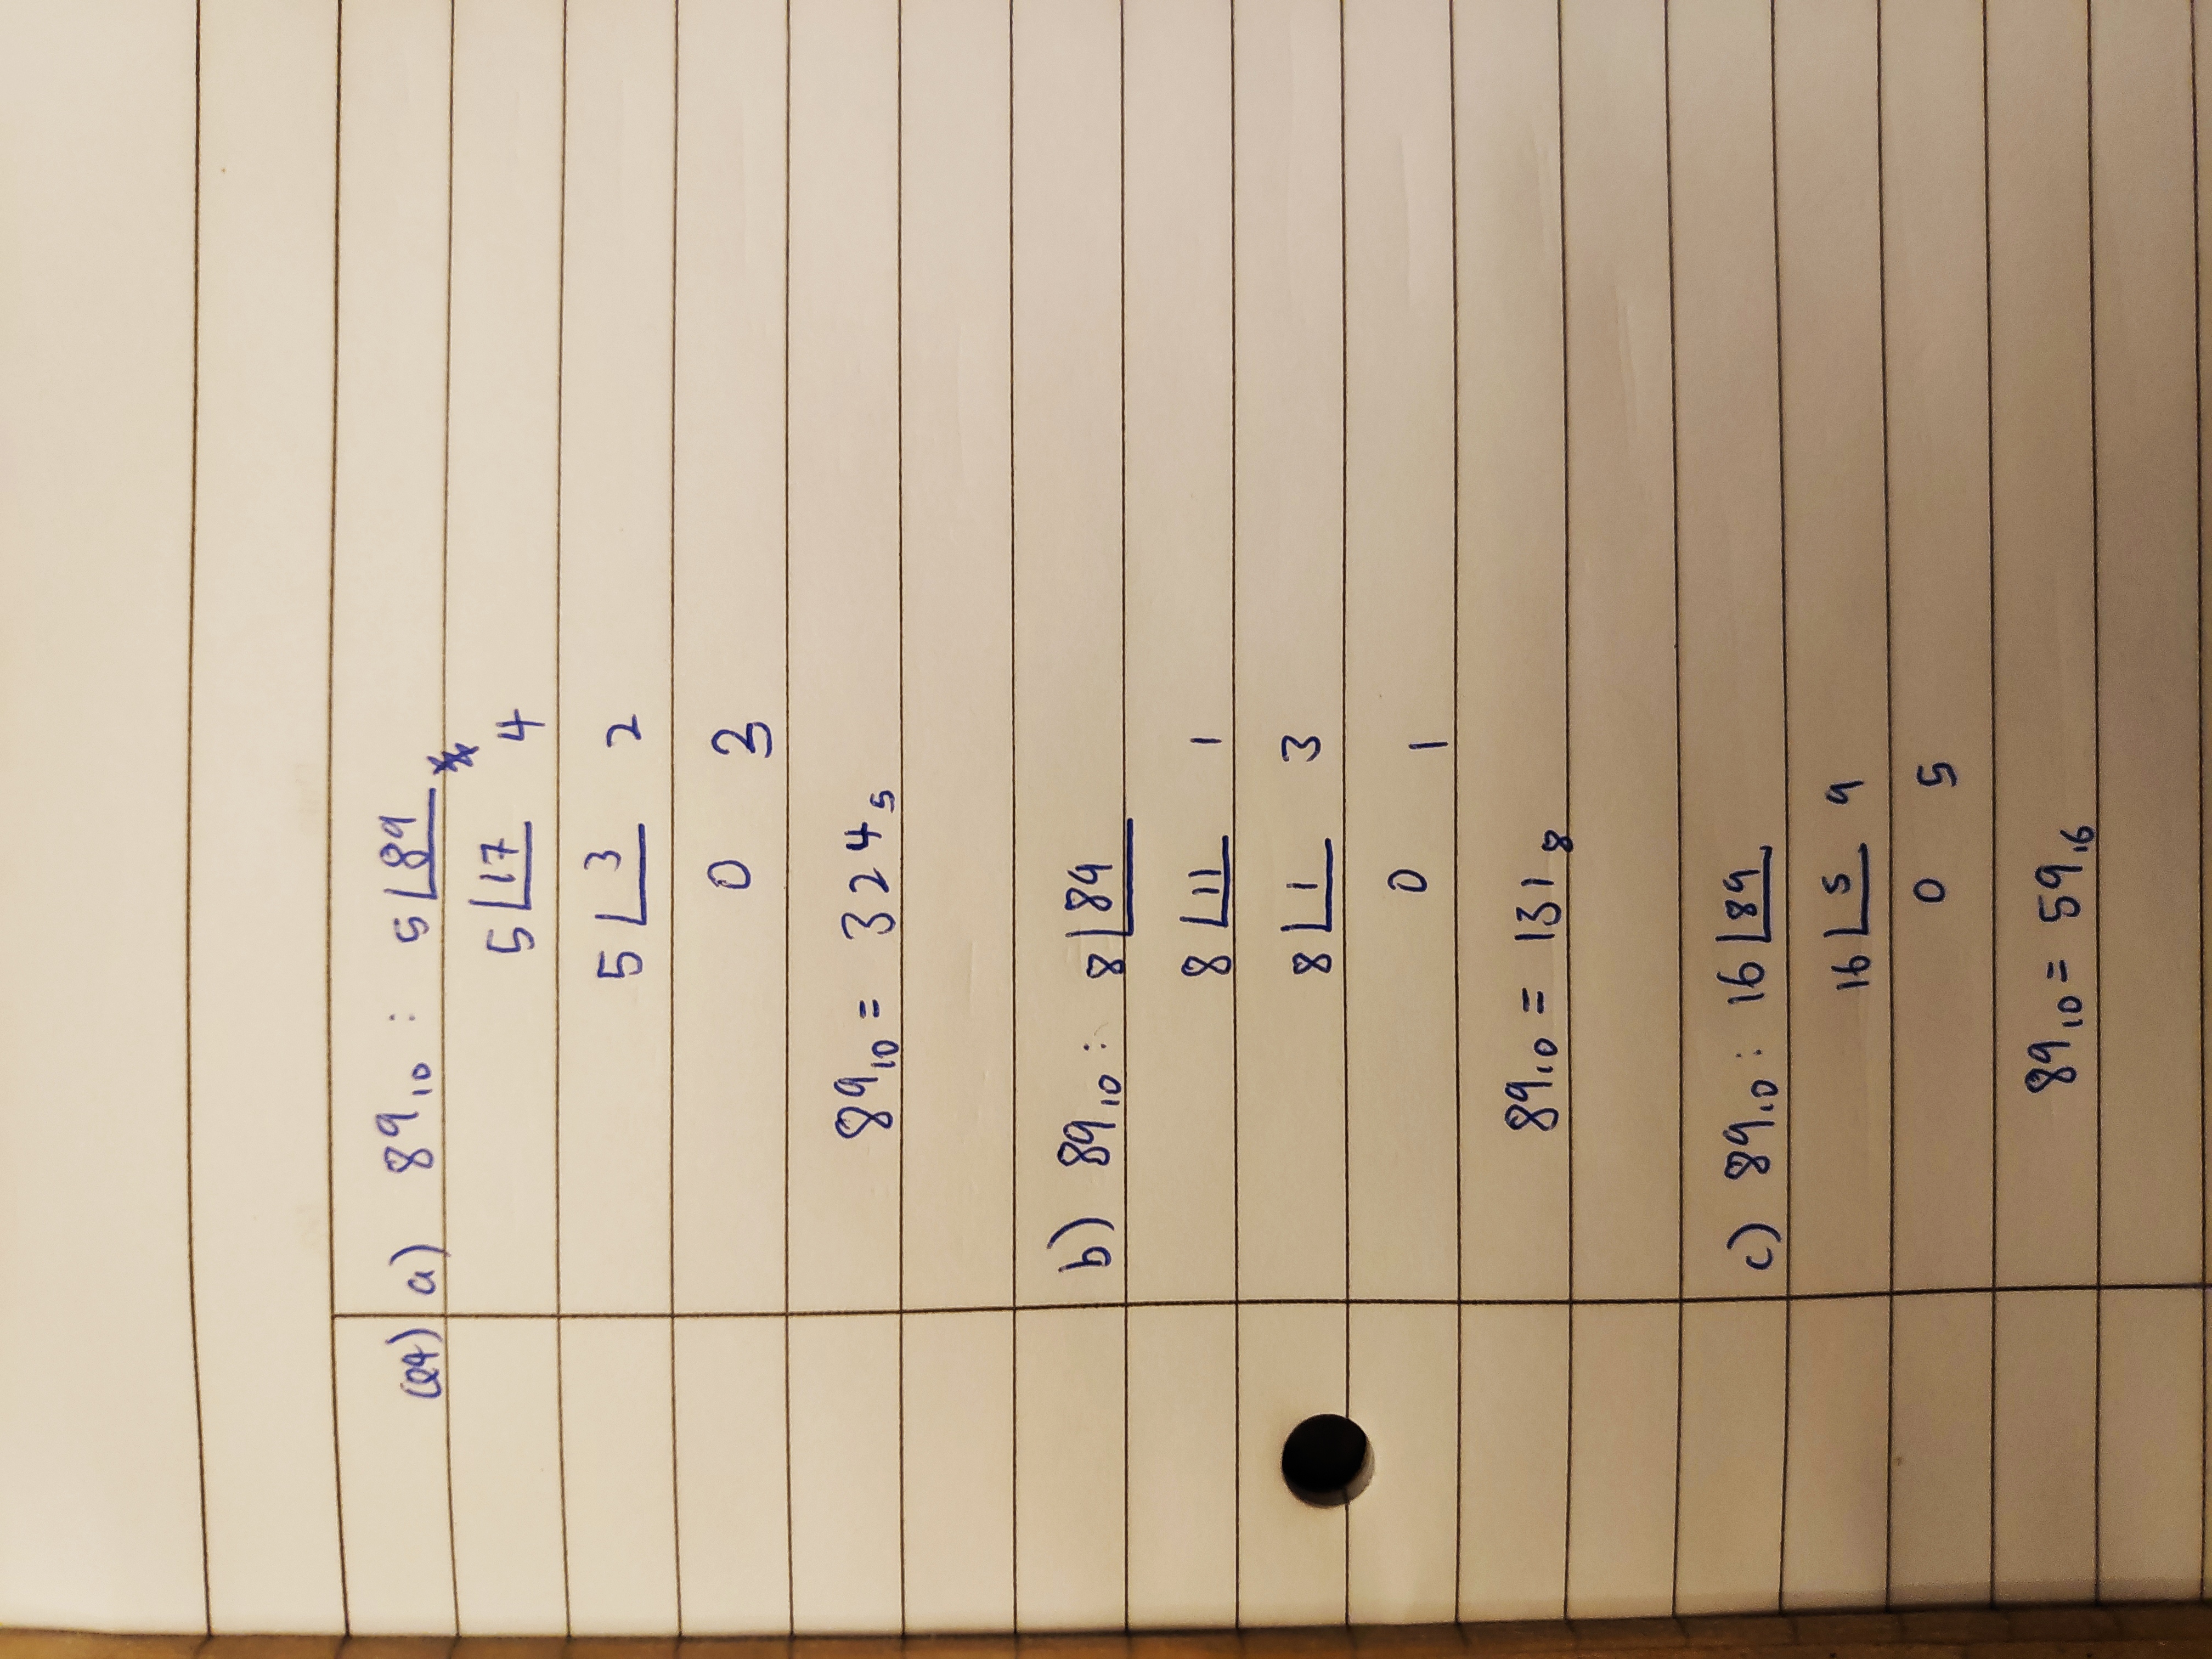 Q4) a) 89₁₀ : 5 89
5 17 4
5 3 2
0 3
89₁₀ = 324₅
b) 89₁₀ : 8 89
8 11 1
8 1 3
0 1
89₁₀ = 131₈
c) 89₁₀ : 16 89
16 5 9
0 5
89₁₀ = 59₁₆